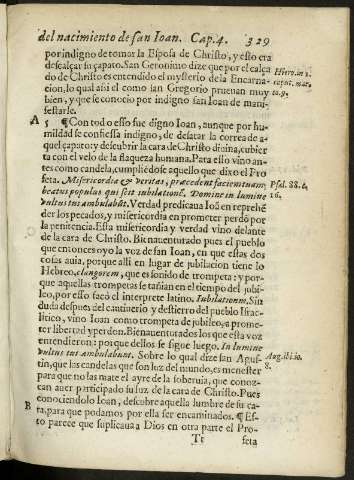 del nacimiento de san Ioan. Cap. 4. 329
por indigno de tomar la Esposa de Christo, y esto era
descalçar su çapato. San Geronimo dize que por el calça
do de Christo es entendido el mysterio de la Encarna-
cion, lo qual assi el como san Gregorio prueuan muy
bien, y que se conocio por indigno san Ioan de mani-
festarle.
A 5 ¶ Con todo esso fue digno Ioan, aunque por hu-
mildad se confiessa indigno, de desatar la correa de a-
quel çapato: y descubrir la cara de Christo diuina, cubier
ta con el velo de la flaqueza humana. Para esso vino an-
tes como candela, cumpliendose aquello que dixo el Pro
feta. Misericordia & veritas, præcedent faciem tuam,
beatus populus qui scit iubilationẽ. Domine in lumine
vultus tui ambulabũt. Verdad predicaua Ioã en reprehẽ
der los pecados, y misericordia en prometer perdõ por
la penitencia. Esta misericordia y verdad vino delante
de la cara de Christo. Bienauenturado pues el pueblo
que entonces oyo la voz de san Ioan, en que estas dos
cosas auia, porque alli en lugar de jubilacion tiene lo
Hebreo, clangorem, que es sonido de trompeta: y por-
que aquellas trompetas se tañian en el tiempo del jubi-
leo, por esso sacó el interprete latino. Iubilationem. Sin
duda despues del cautiuerio y destierro del pueblo Israe-
litico, vino Ioan como trompeta de jubileo, a prome-
ter libertad y perdon. Bienauenturados los que esta voz
entendieron: porque dellos se sigue luego. In lumine
vultus tui ambulabunt. Sobre lo qual dize san Agus-
tin, que las candelas que son luz del mundo, es menester
para que no las mate el ayre de la soberuia, que conoz-
can auer participado su luz de la cara de Christo. Pues
conociendolo Ioan, descubre aquella lumbre de su ca-
B ra, para que podamos por ella ser encaminados. ¶ Es-
to parece que suplicaua a Dios en otra parte el Pro-
Tt feta
Psal. 88. c.
16.
Aug. ibi. to.
8.